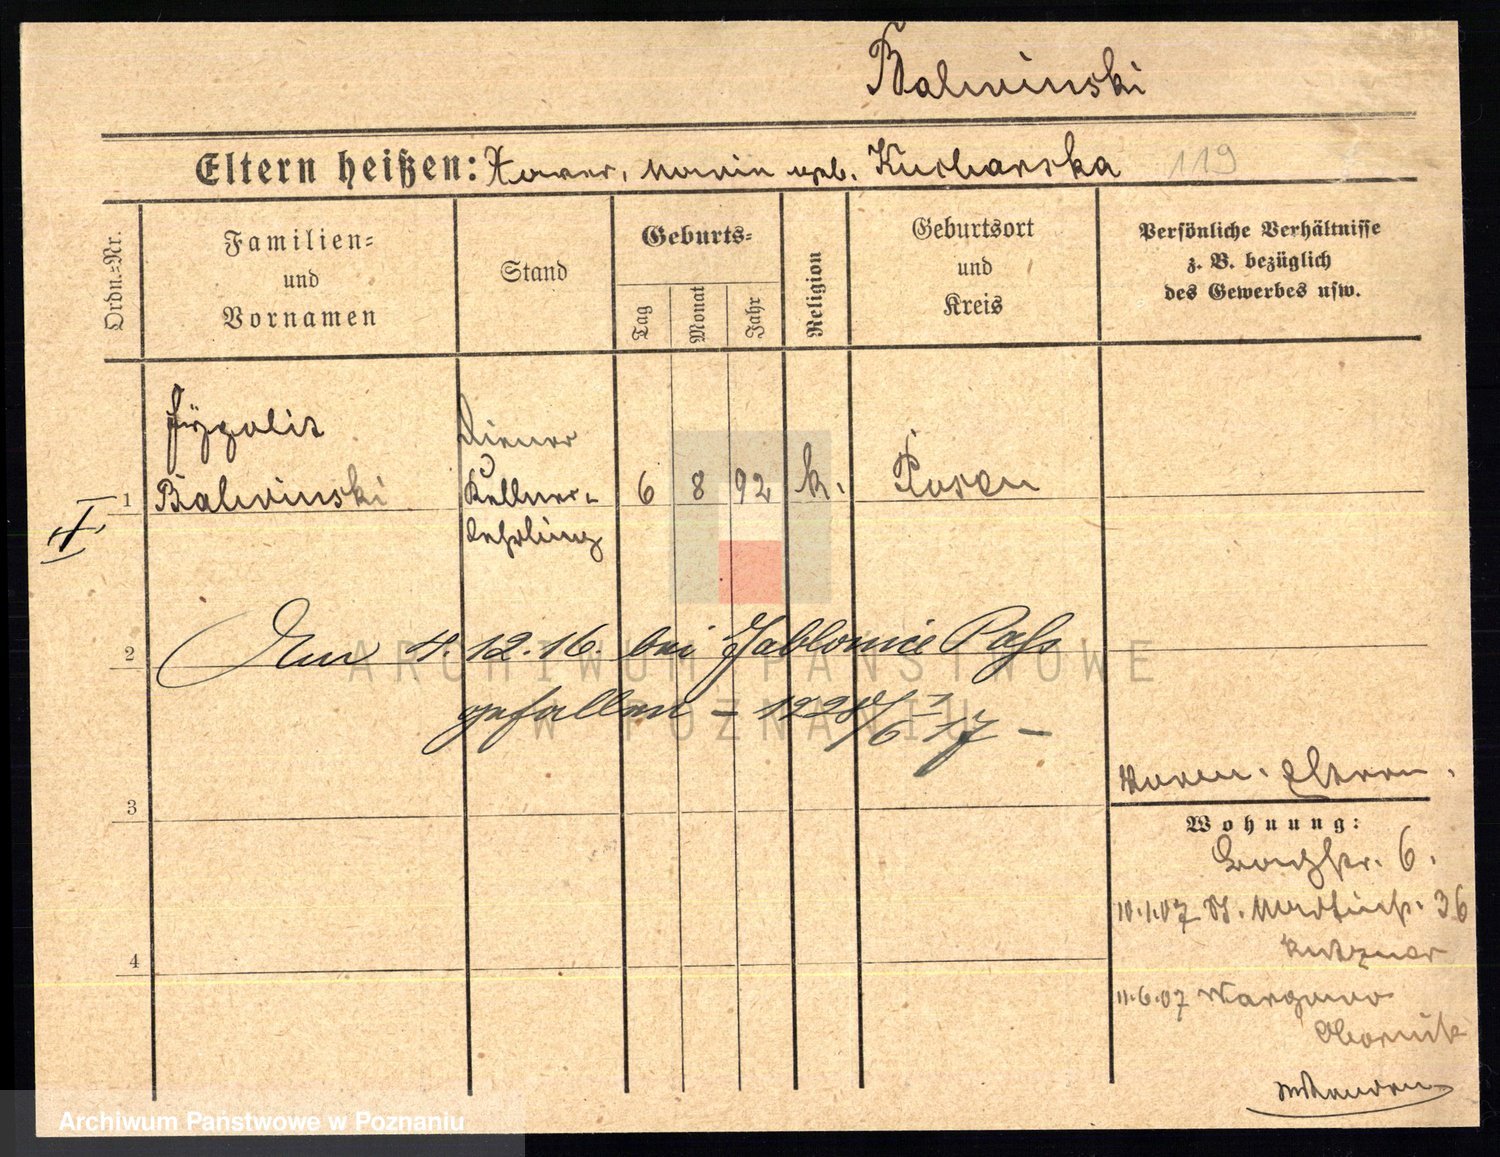 Balwinski
Eltern heißen: Xaver, Marie geb. Kucharska 119
Ordn.=Nr.
Familien=
und
Vornamen
Stand
Geburts=
Tag
Monat
Jahr
Religion
Geburtsort
und
Kreis
Persönliche Verhältnisse
z. B. bezüglich
des Gewerbes usw.
Hypolit
Balwinski
Diener
Kellner-
lehrling
1 6 8 92 k. Posen
2
Am 4.12.16. bei Jablonice Pass
gefallen –
3
Eltern.
Wohnung:
6.
10.1.07 St. Martinstr. 36
4
11.6.07 Wargowo
Obornik
ARCHIWUM PAŃSTWOWE
W POZNANIU
Archiwum Państwowe w Poznaniu